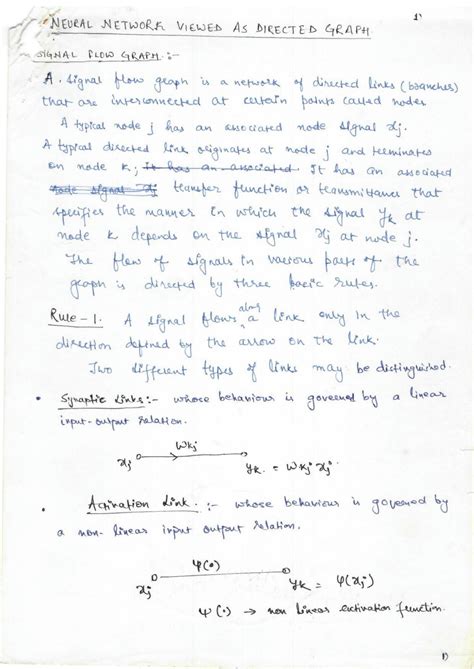 1)
NEURAL NETWORK VIEWED AS DIRECTED GRAPH
SIGNAL FLOW GRAPH :-
A signal flow graph is a network of directed links (branches)
that are interconnected at certain points called nodes
A typical node j has an associated node signal xj.
A typical directed link originates at node j and terminates
on node k; It has an associated It has an associated
node signal xj transfer function or transmittance that
specifies the manner in which the signal yk at
node k depends on the signal xj at node j.
The flow of signals in various parts of the
graph is directed by three basic rules.
Rule-1. A signal flows along a link only in the
direction defined by the arrow on the link.
Two different types of links may be distinguished.
• Synaptic Links :- whose behaviour is governed by a linear
input-output relation.
wkj
xj yk = wkj xj
• Activation Link :- whose behaviour is governed by
a non-linear input output relation.
φ(•)
xj yk = φ(xj)
φ(•) → non linear activation function.
1)